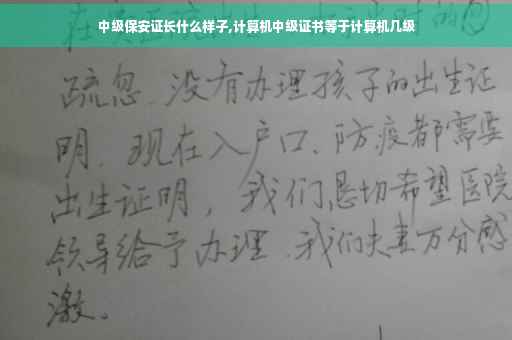 中级保安证长什么样子,计算机中级证书等于计算机几级
疏忽、没有办理孩子的出生证
明、现在入户口、防疫都需要
出生证明，我们恳切希望医院
领导给予办理、我们夫妻万分感
激。